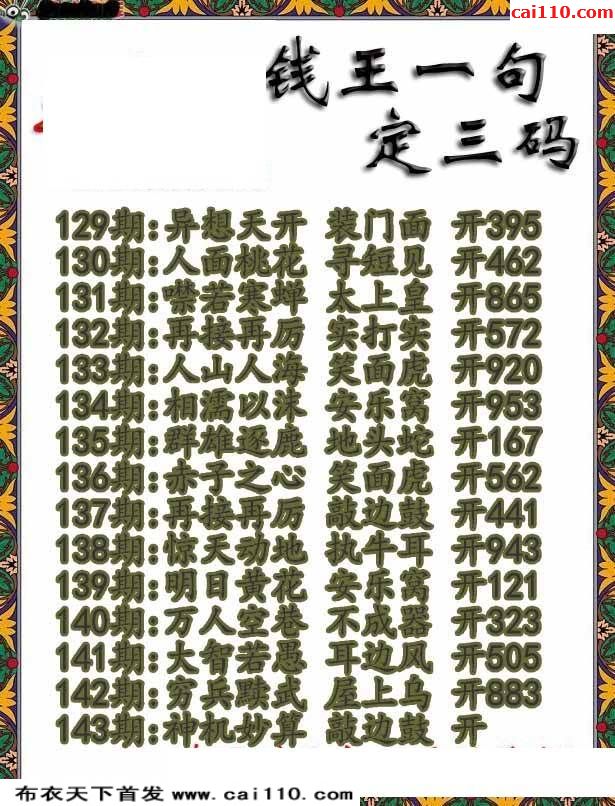 cai110.com
钱王一句
定三码
129期:异想天开 装门面 开395
130期:人面桃花 寻短见 开462
131期:噤若寒蝉 太上皇 开865
132期:再接再厉 实打实 开572
133期:人山人海 笑面虎 开920
134期:相濡以沫 安乐窝 开953
135期:群雄逐鹿 地头蛇 开167
136期:赤子之心 笑面虎 开562
137期:再接再厉 敲边鼓 开441
138期:惊天动地 执牛耳 开943
139期:明日黄花 安乐窝 开121
140期:万人空巷 不成器 开323
141期:大智若愚 耳边风 开505
142期:穷兵黩武 屋上乌 开883
143期:神机妙算 敲边鼓 开
布衣天下首发 www.cai110.com